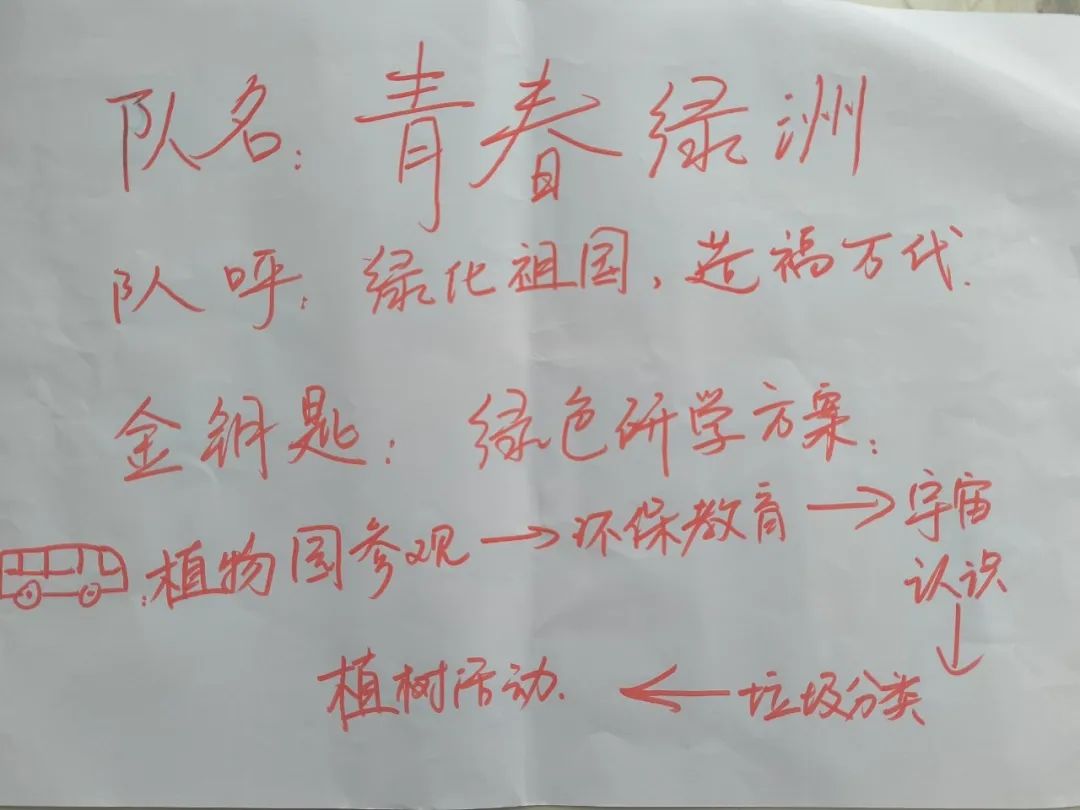 队名：青春绿洲
队呼：绿化祖国，造福万代.
金钥匙：绿色研学方案：
：植物园参观→环保教育→宇宙
认识
↓
植树活动.←垃圾分类